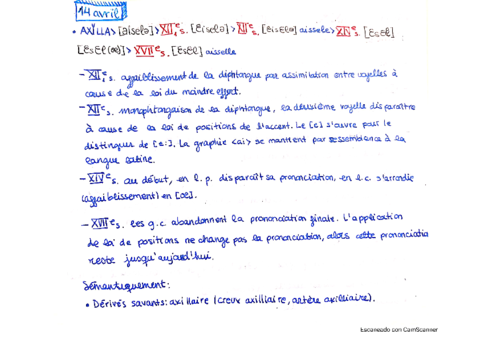 14 avril
• AXĬLLA> [ai̯sęlə] > XIIᵉs. [ęi̯sęlə] > XIIᵉs. [ęisęlə] aissele > XIVᵉs. [ęsęl]
[ęsęl(œ)] > XVIIᵉs. [ęsęl] aisselle
– XIIᵉs. affaiblissement de la diphtongue par assimilation entre voyelles à
cause de la loi du moindre effort.
– XIIᵉs. monophtongaison de la diphtongue, la deuxième voyelle disparaître
à cause de la loi de positions de l'accent. Le [e] s'ouvre pour le
distingue de [e:]. La graphie <ai> se maintient par ressemblence à la
langue latine.
– XIVᵉs. au début, en l.p. disparaît sa prononciation, en l.c. s'arrondie
(affaiblissement) en [œ].
– XVIIᵉs. les g.c. abandonnent la prononciation finale. L'application
de loi de positions ne change pas la prononciation, alors cette prononciatio
reste jusqu'aujourd'hui.
Sémantiquement:
• Dérivés savants: axillaire (creux axilliaire, artère axilliaire).
Escaneado con CamScanner